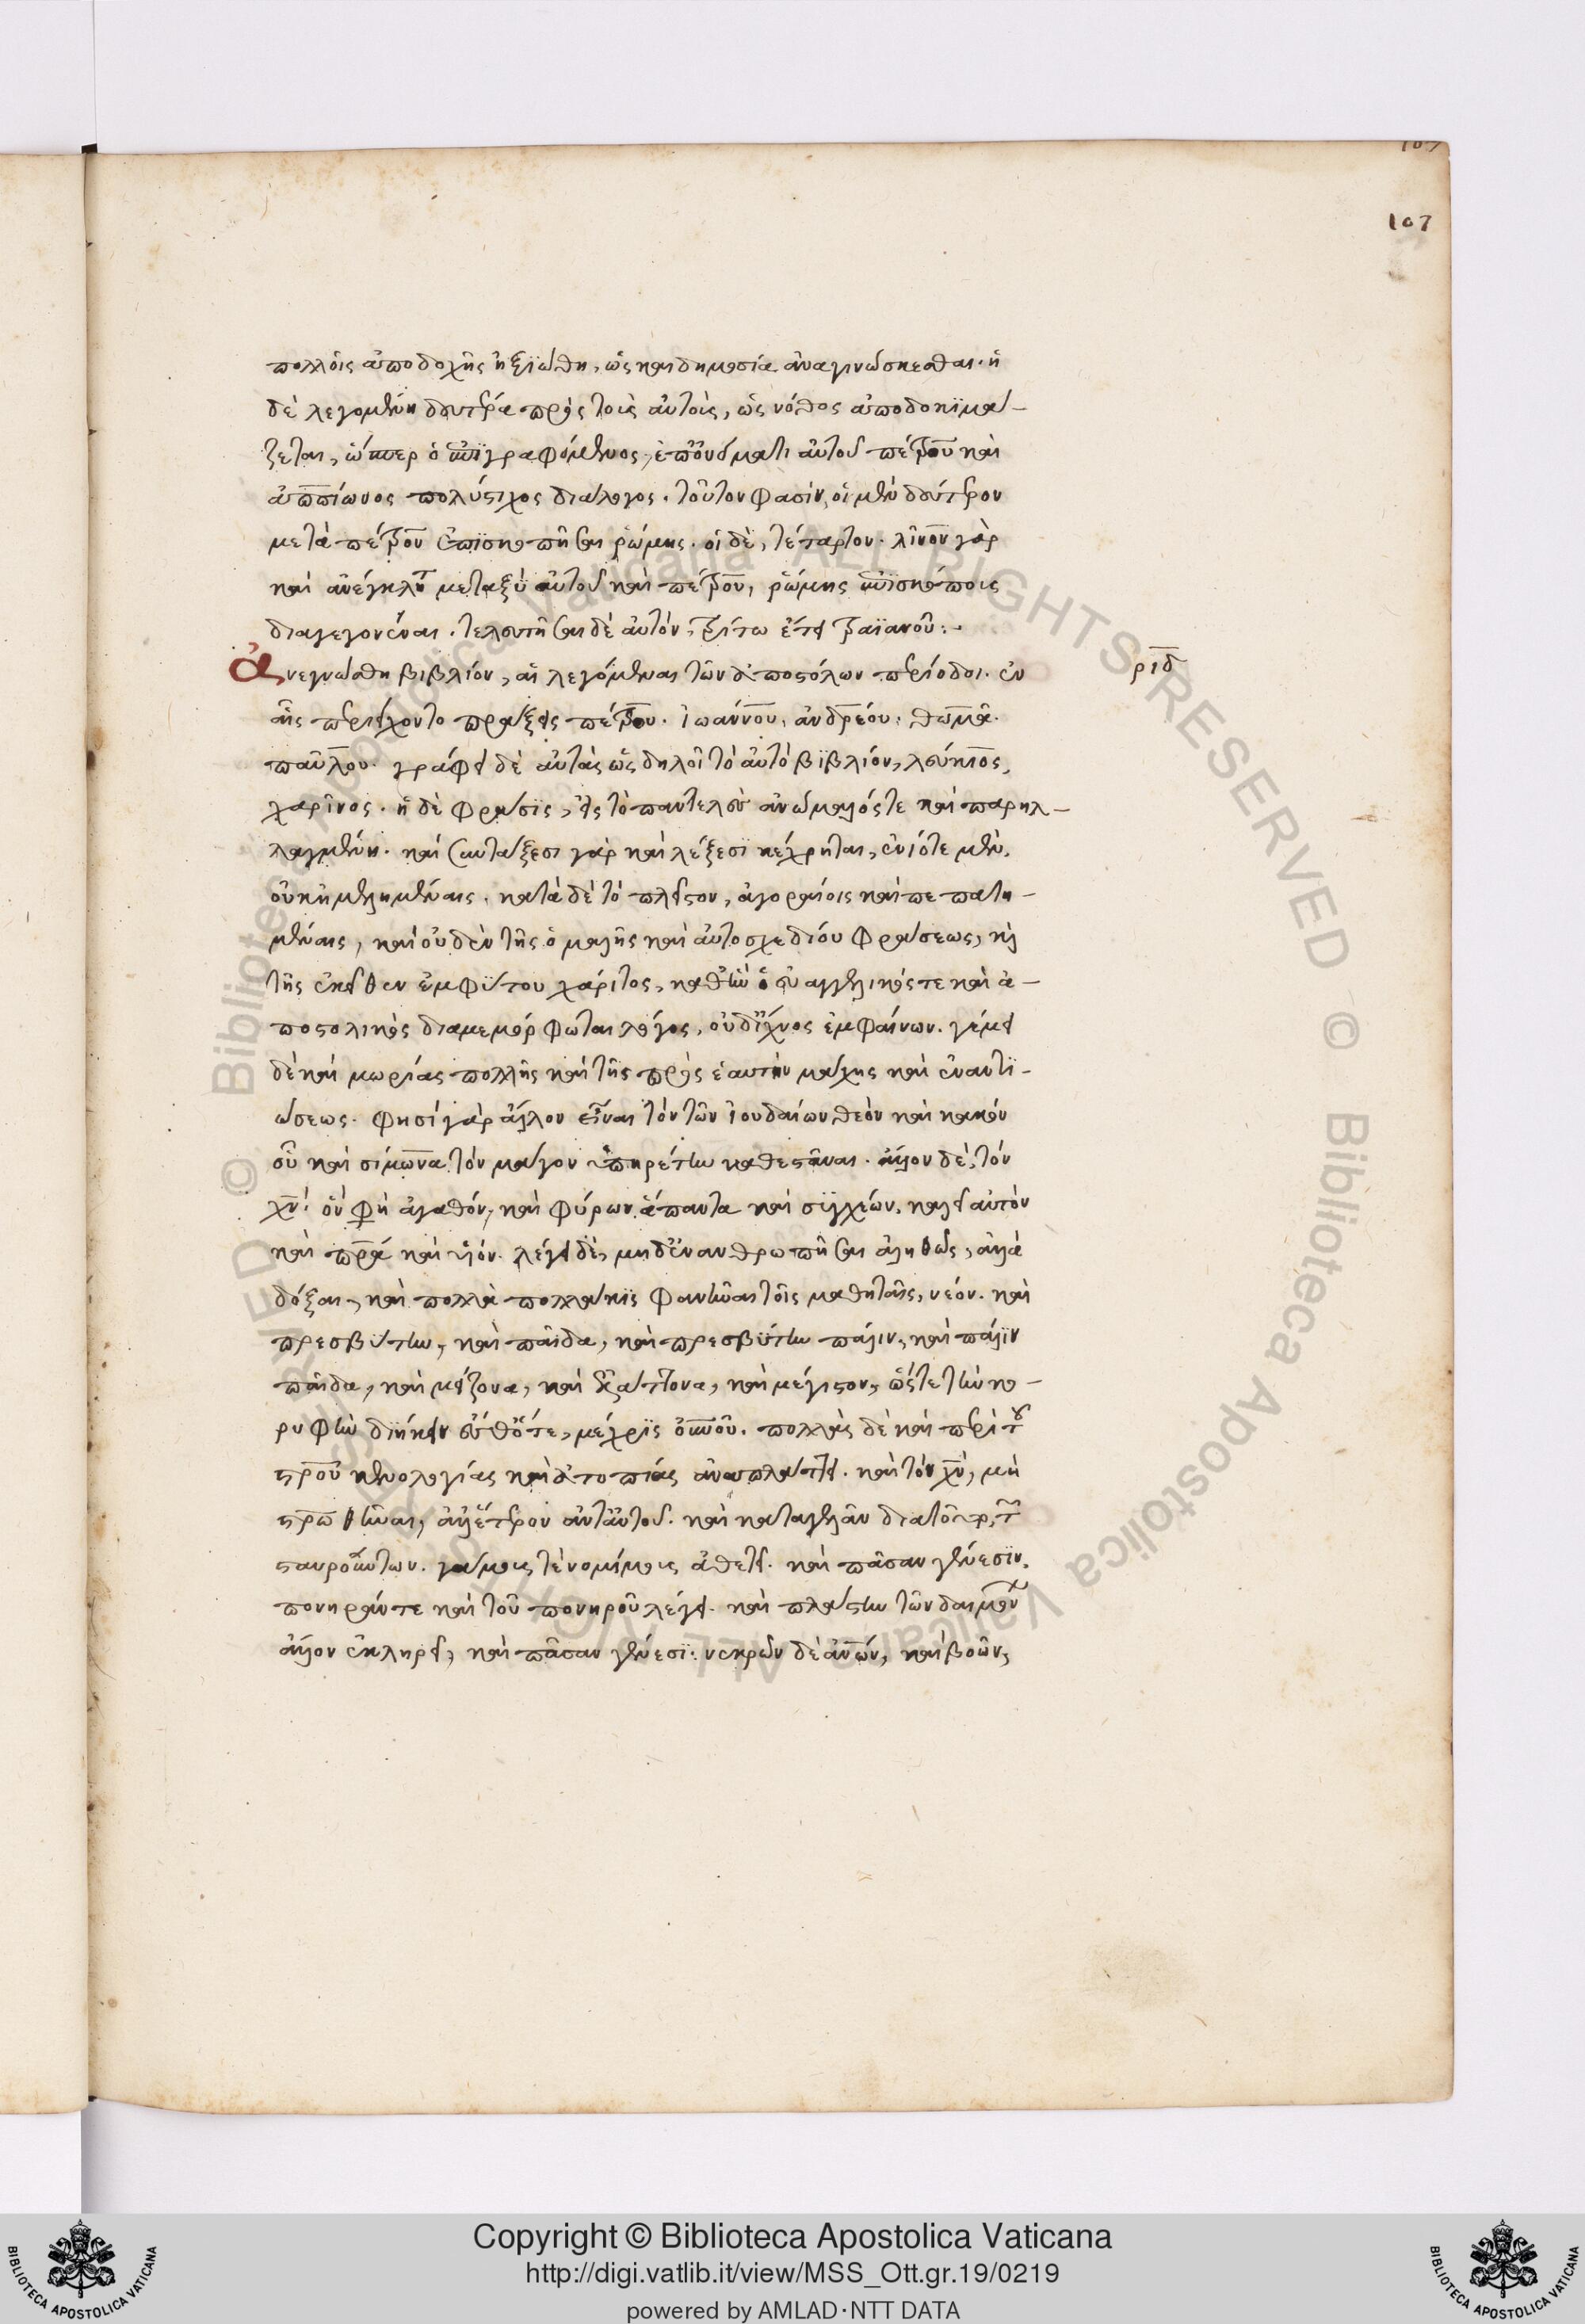 107
πολλοῖς ἀποδοχῆς ἠξιώθη, ὡς καὶ δημοσία ἀναγινώσκεσθαι. ἡ
δὲ λεγομένη δευτέρα πρὸς τοὺς αὐτοὺς, ὡς νόθος ἀποδοκιμά-
ζεται, ὥσπερ ὁ ἐπιγραφόμενος, ἐπ' ὀνόματι αὐτοῦ πέτρου καὶ
ἀππίωνος πολύστιχος διάλογος. τοῦτον φασὶν, οἱ μὲν δεύτερον
μετὰ πέτρου ἐπισκοπῆσαι ῥώμης. οἱ δὲ, τέταρτον. λῖνον γὰρ
καὶ ἀνέγκλητ μεταξὺ αὐτοῦ καὶ πέτρου, ῥώμης ἐπισκόπους
διαγεγονέναι. τελευτῆσαι δὲ αὐτὸν, τρίτω ἔτει τραϊανοῦ:.
Ἀνεγνώσθη βιβλίον, αἱ λεγόμεναι τῶν ἀποστόλων περίοδοι. ἐν ριδ
αἷς περιείχοντο πράξεις πέτρου. ἰωάννου, ἀνδρέου, θωμᾶ.
παύλου. γράφει δὲ αὐτὰς ὡς δηλοῖ τὸ αὐτὸ βιβλίον, λεύκιος,
χαρῖνος. ἡ δὲ φράσις, εἰς τὸ παντελὲς ἀνώμαλός τε καὶ παρηλ-
λαγμένη. καὶ συντάξεσι γὰρ καὶ λέξεσι κέχρηται, ἐνίοτε μὲν,
οὐκ ἠμελημέναις. κατὰ δὲ τὸ πλεῖστον, ἀγοραίοις καὶ πεπατη-
μέναις, καὶ οὐδὲν τῆς ὁμαλῆς καὶ αὐτοσχεδίου φράσεως, καὶ
τῆς ἐκεῖθεν ἐμφύτου χάριτος, καθ' ἣν ὁ εὐαγγελικός τε καὶ ἀ-
ποστολικὸς διαμεμόρφωται λόγος, οὐδ' ἴχνος ἐμφαίνων. γέμει
δὲ καὶ μωρίας πολλῆς καὶ τῆς πρὸς ἑαυτὴν μάχης καὶ ἐναντι-
ώσεως. φησὶ γὰρ ἄλλον εἶναι τὸν τῶν ἰουδαίων θεὸν καὶ κακόν
οὗ καὶ σίμωνα τὸν μάγον ὑπηρέτην καθεστᾶναι. ἄλλον δὲ, τὸν
χν, ὅν φη ἀγαθόν, καὶ φύρων ἅπαντα καὶ συγχέων, καλεῖ αὐτὸν
καὶ πρα καὶ υἱόν. λέγει δὲ, μηδ' ἐνανθρωπῆσαι ἀληθῶς, ἀλλὰ
δόξαι, καὶ πολλὰ πολλάκις φανῆναι τοῖς μαθηταῖς, νέον. καὶ
πρεσβύτην, καὶ παῖδα, καὶ πρεσβύτην πάλιν, καὶ πάλιν
παῖδα, καὶ μείζονα, καὶ ἐλάττονα, καὶ μέγιστον, ὥστε τὴν κο-
ρυφὴν διήκειν ἔσθ' ὅτε, μέχρις οὐνοῦ. πολλὰς δὲ καὶ περὶ τοῦ
στροῦ κενολογίας καὶ ἀτοπίας ἀναπλάττει. καὶ τὸν χν, μὴ
στρωθῆναι, ἀλλ' ἕτερον ἀντ' αὐτοῦ. καὶ καταγελᾶν διατοῦτο, τ
σταυρούντων. γάμους τὲ νομίμους ἀθετεῖ. καὶ πᾶσαν γένεσιν.
πονηράν τε καὶ τοῦ πονηροῦ λέγει. καὶ πλάστην τῶν δαιμόν
ἄλλον ἐκληρεῖ, καὶ πᾶσαν γένεσι: νεκρῶν δὲ ἀνων, καὶ βοῶν,